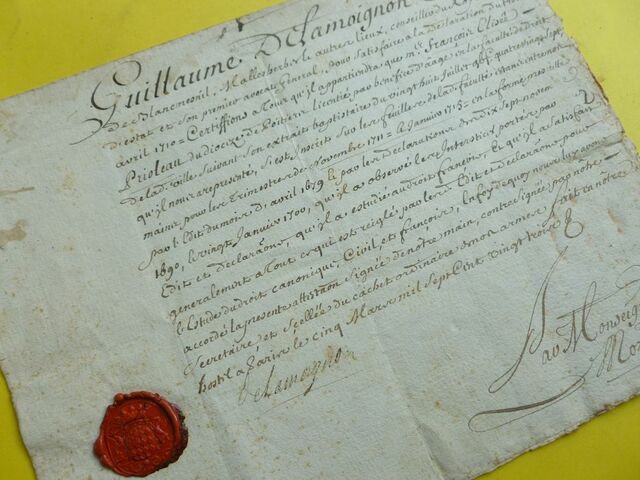 Guillaume DeLamoignon
De Blancmesnil, Mallesherbes & autres lieux, conseiller du
d'estat et son premier avocat general, pour satisfaire a la declaration du
avril 1710 = Certiffions a tous qu'il appartiendra que Mre François
Prioleau du dioceze de Poitiers licentié par benefice d'aage en la faculté de droit
de lad. ville suivant son extrait baptistaire du vingt huit Juillet
qu'il nous a representé, s'est inscrit sur les feuilles de lad. faculté
maine, pour les Trimestres de novembre 1711 & Janvier 1712 = en la forme prescritte
par l'Edit du mois d'avril 1679 & par les declarations des dix sept novem
1690, le vingt Janvier 1700, qu'il a observé les Interstices portés par
Edit et declaraons, qu'il a estudié au droit françois, et qu'il a satisfait
generalement a tout ce qui est reiglé par lesd. Edit et declaraons pour
l'Estude du droit canonique, Civil, et françois, En foy de quoy nous luy avons
accordé la presente attestaon signée de notre main, contresignée par notre
secretaire, et scellée du cachet ordinaire de nos armes, fait en notre
hostel a Paris le cinq Mars mil sept Cent vingt trois
DeLamoignon
Par Monseigneur